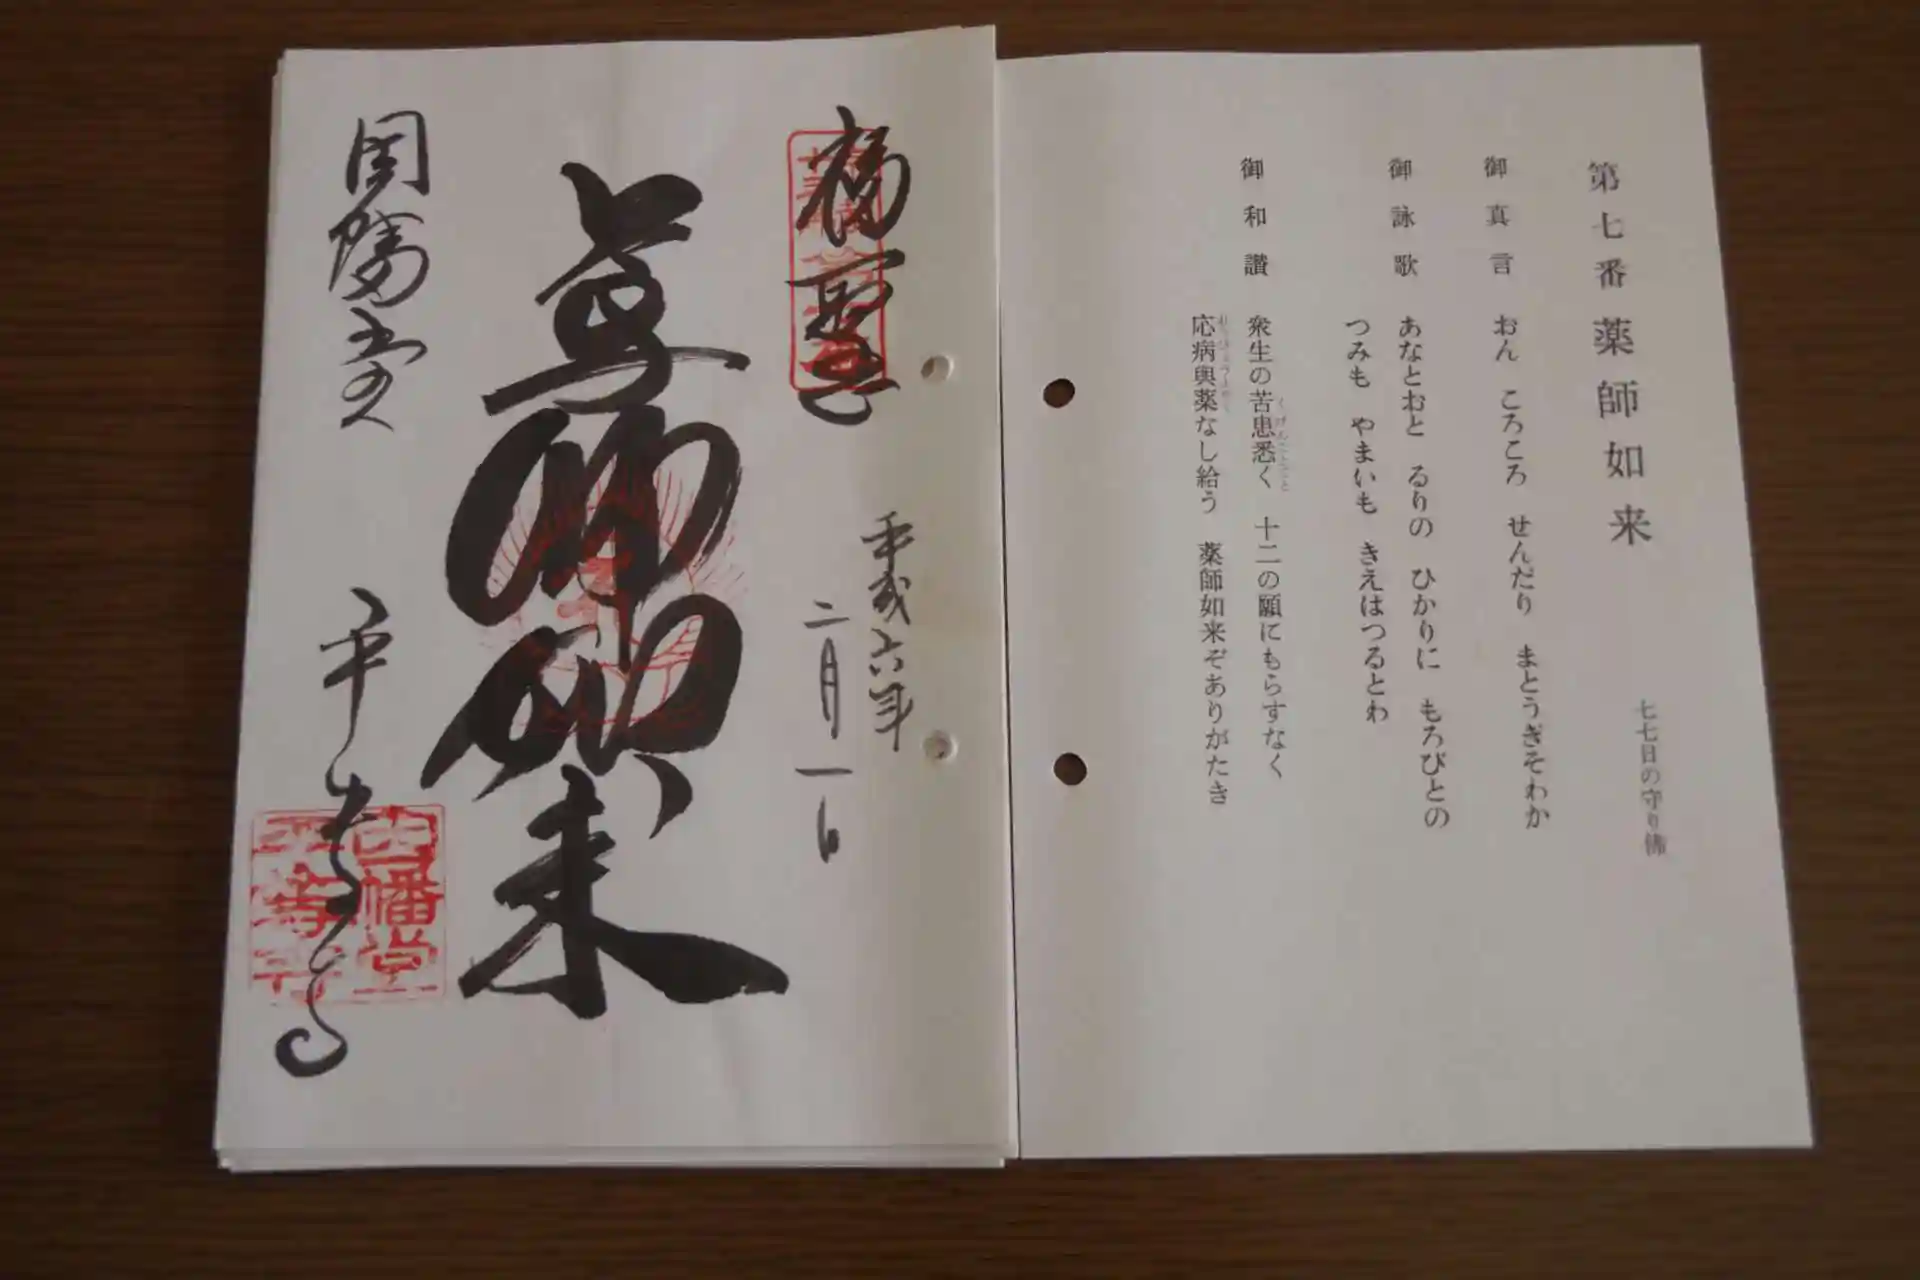 第七番 薬師如来
七七日の守り佛
御真言 おん ころころ せんだり まとうぎそわか
御詠歌 あなとおと るりの ひかりに もろびとの
つみも やまいも きえはつるとわ
御和讃 衆生の苦患悉く 十二の願にもらすなく
くげんことごと
応病與薬なし給う 薬師如来ぞありがたき
おうびょうよやく
平成六年
二月一日
因幡堂
平等寺
因幡堂
平等寺